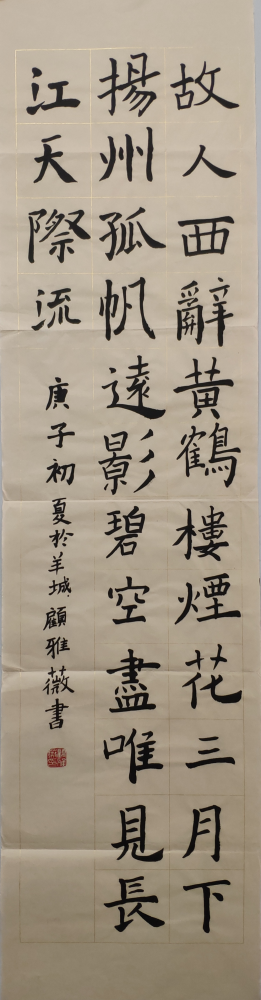 故人西辭黃鶴樓煙花三月下
揚州孤帆遠影碧空盡唯見長
江天際流
庚子初夏於羊城顧雅薇書